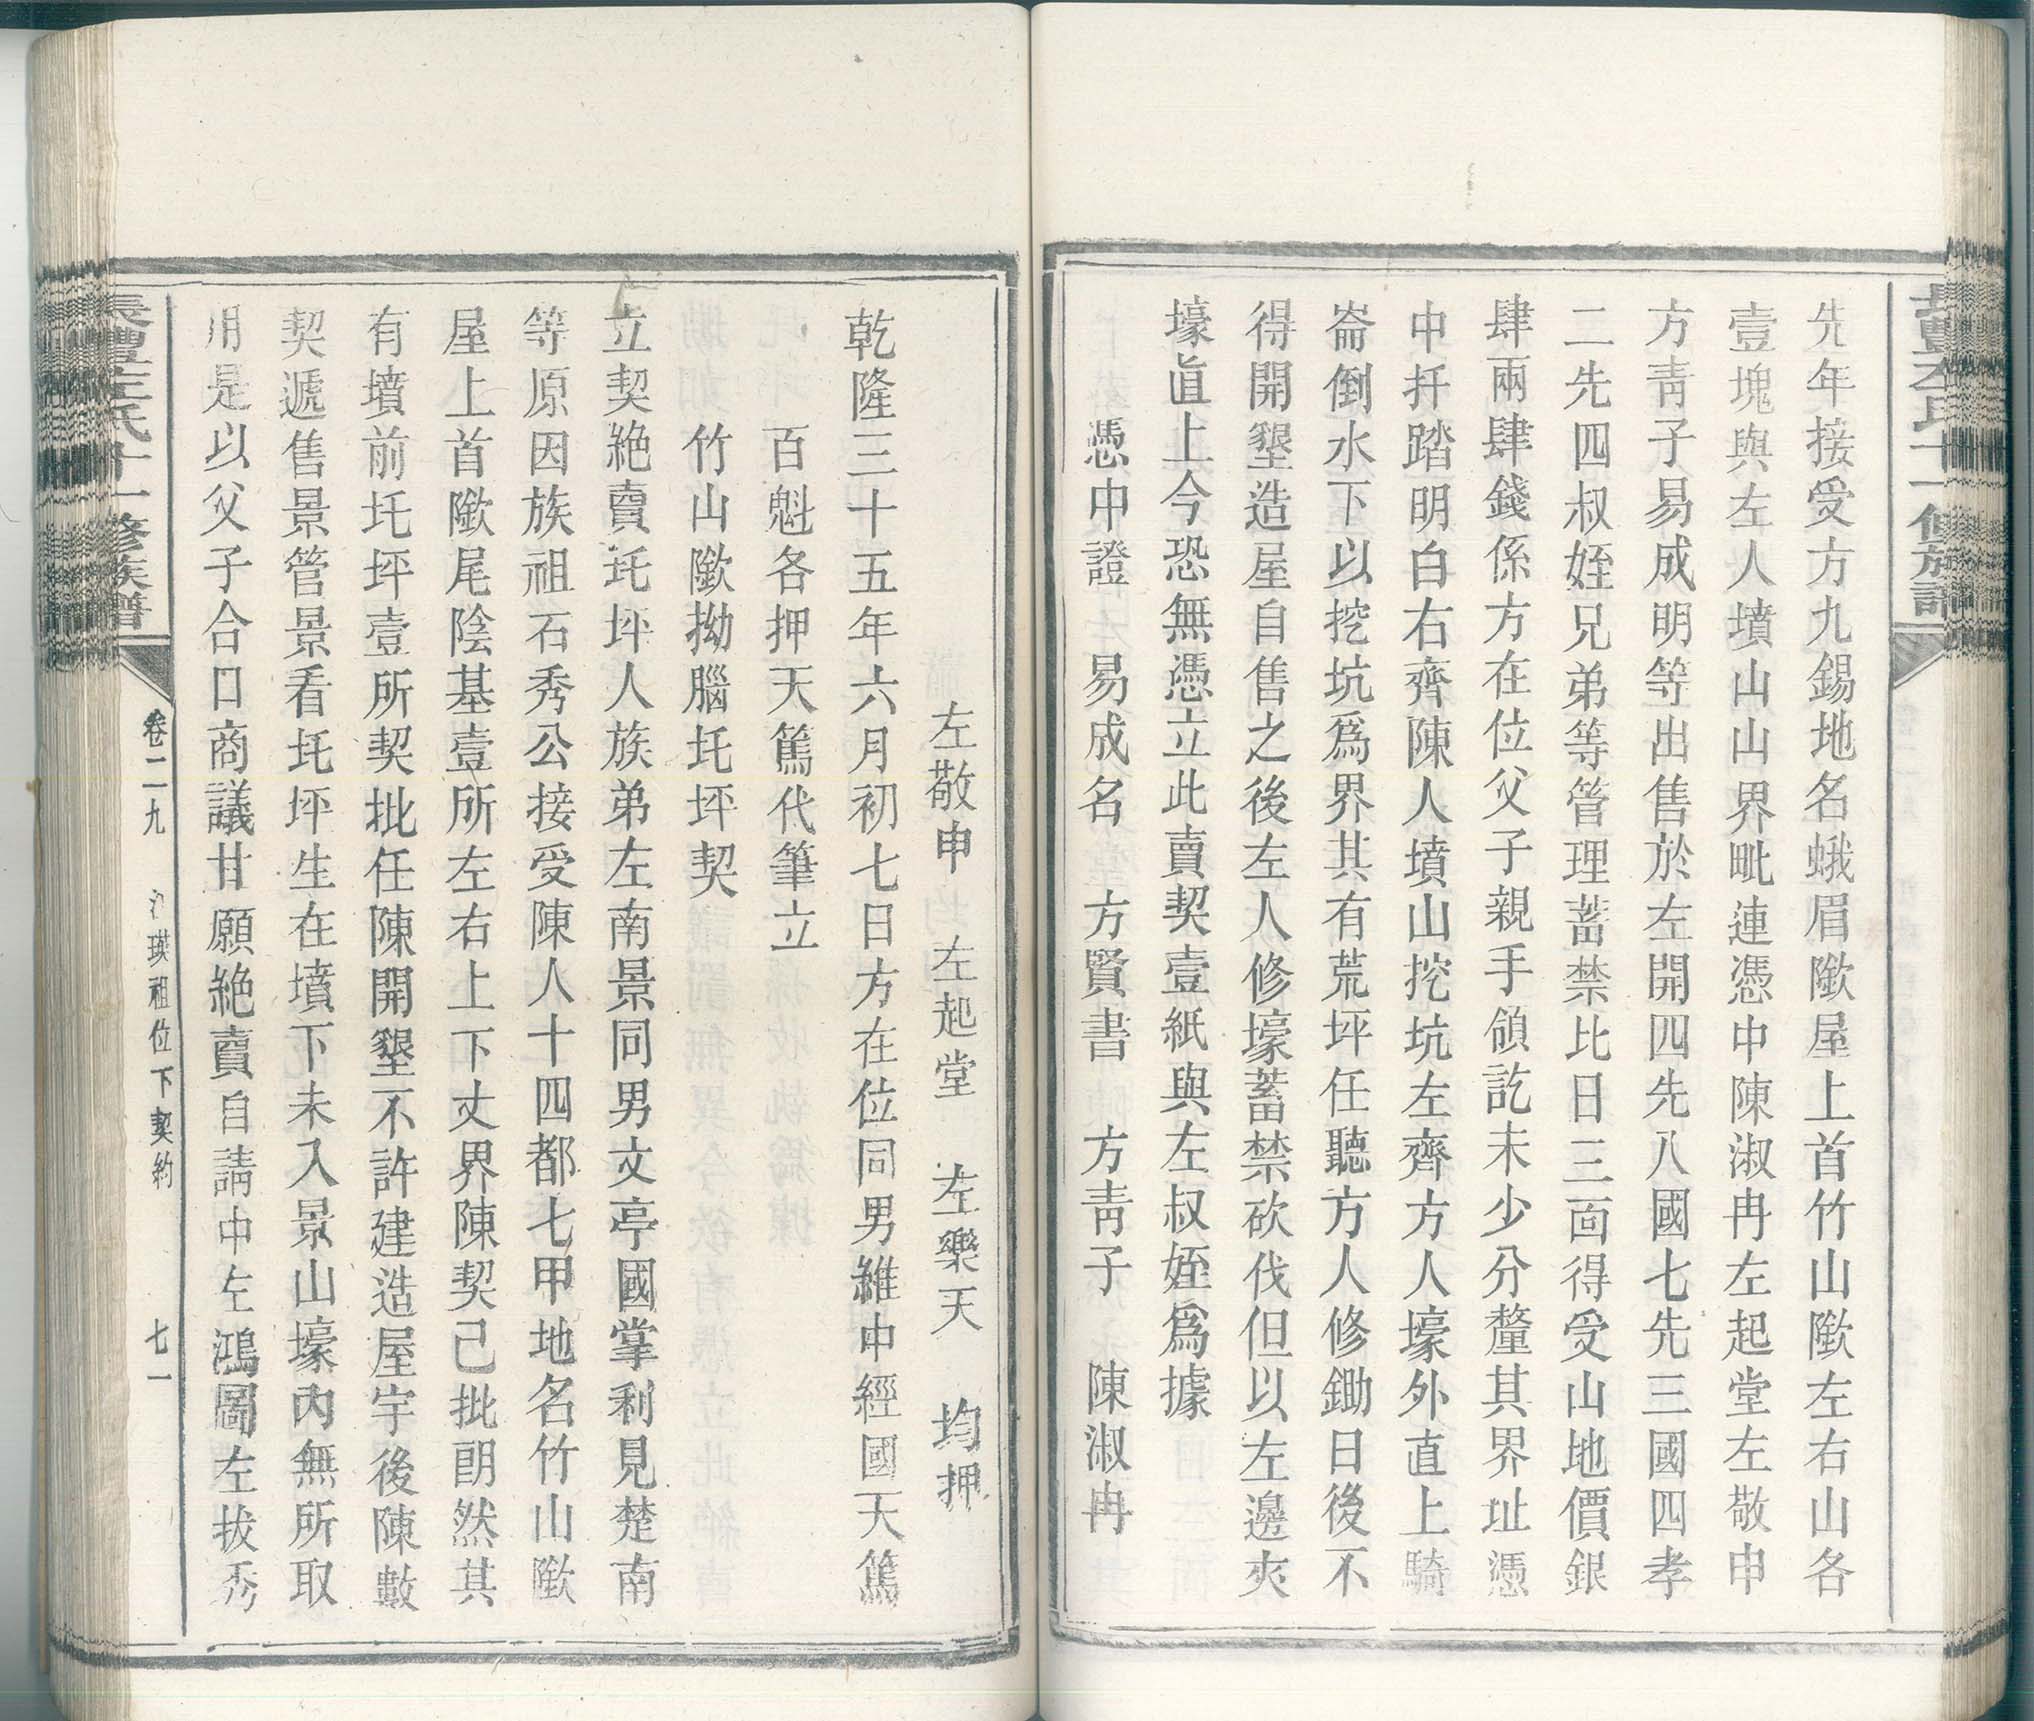 先年接受方九錫地名蛾眉㘓屋上首竹山㘓左右山各
壹塊與左人墳山山界毗連憑中陳淑冉左起堂左敬申
方靑子易成明等出售於左開四先八國七先三國四孝
二先四叔姪兄弟等管理蓄禁比日三面得受山地價銀
肆兩肆錢係方在位父子親手領訖未少分釐其界址憑
中扦踏明白右齊陳人墳山挖坑左齊方人壕外直上騎
崙倒水下以挖坑爲界其有荒坪任聽方人修鋤日後不
得開墾造屋自售之後左人修壕蓄禁砍伐但以左邊夾
壕直上今恐無憑立此賣契壹紙與左叔姪爲據
憑中證　易成名　方賢書　方靑子　陳淑冉
左敬申　左起堂　左樂天　均押
乾隆三十五年六月初七日方在位同男維中經國天篤
百魁各押天篤代筆立
竹山㘓拗腦圫坪契
立契絶賣圫坪人族弟左南景同男文亭國掌利見楚南
等原因族祖石秀公接受陳人十四都七甲地名竹山㘓
屋上首㘓尾陰基壹所左右上下丈界陳契已批朗然其
有墳前圫坪壹所契批任陳開墾不許建造屋宇後陳數
契遞售景管景看圫坪生在墳下未入景山壕內無所取
用是以父子合口商議甘願絶賣自請中左鴻圖左拔秀
長豐左氏十一修族譜
長豐左氏十一修族譜
卷二九
瑛祖位下契約
七一